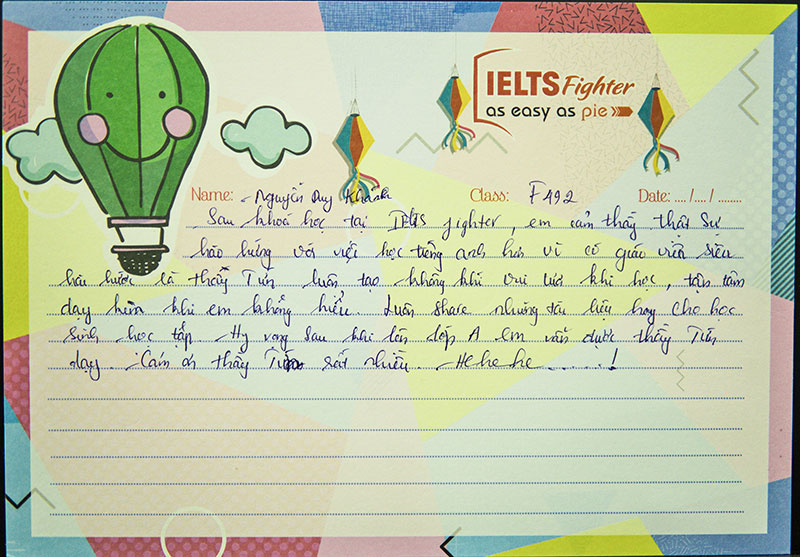 IELTS Fighter
as easy as pie
Name: Nguyễn Duy Khánh Class: F492 Date: .... /.... / ........
Sau khoá học tại IELTS fighter, em cảm thấy thật sự
hào hứng với việc học tiếng anh hơn vì có giáo viên siêu
hài hước là thầy Tiến luôn tạo không khí vui tươi khi học, tận tâm
dạy khi em không hiểu. Luôn share những tài liệu hay cho học
sinh học tập. Hy vọng sau khi lên lớp A em vẫn được thầy Tiến
dạy. Cảm ơn thầy Tiến rất nhiều. He he he.....!